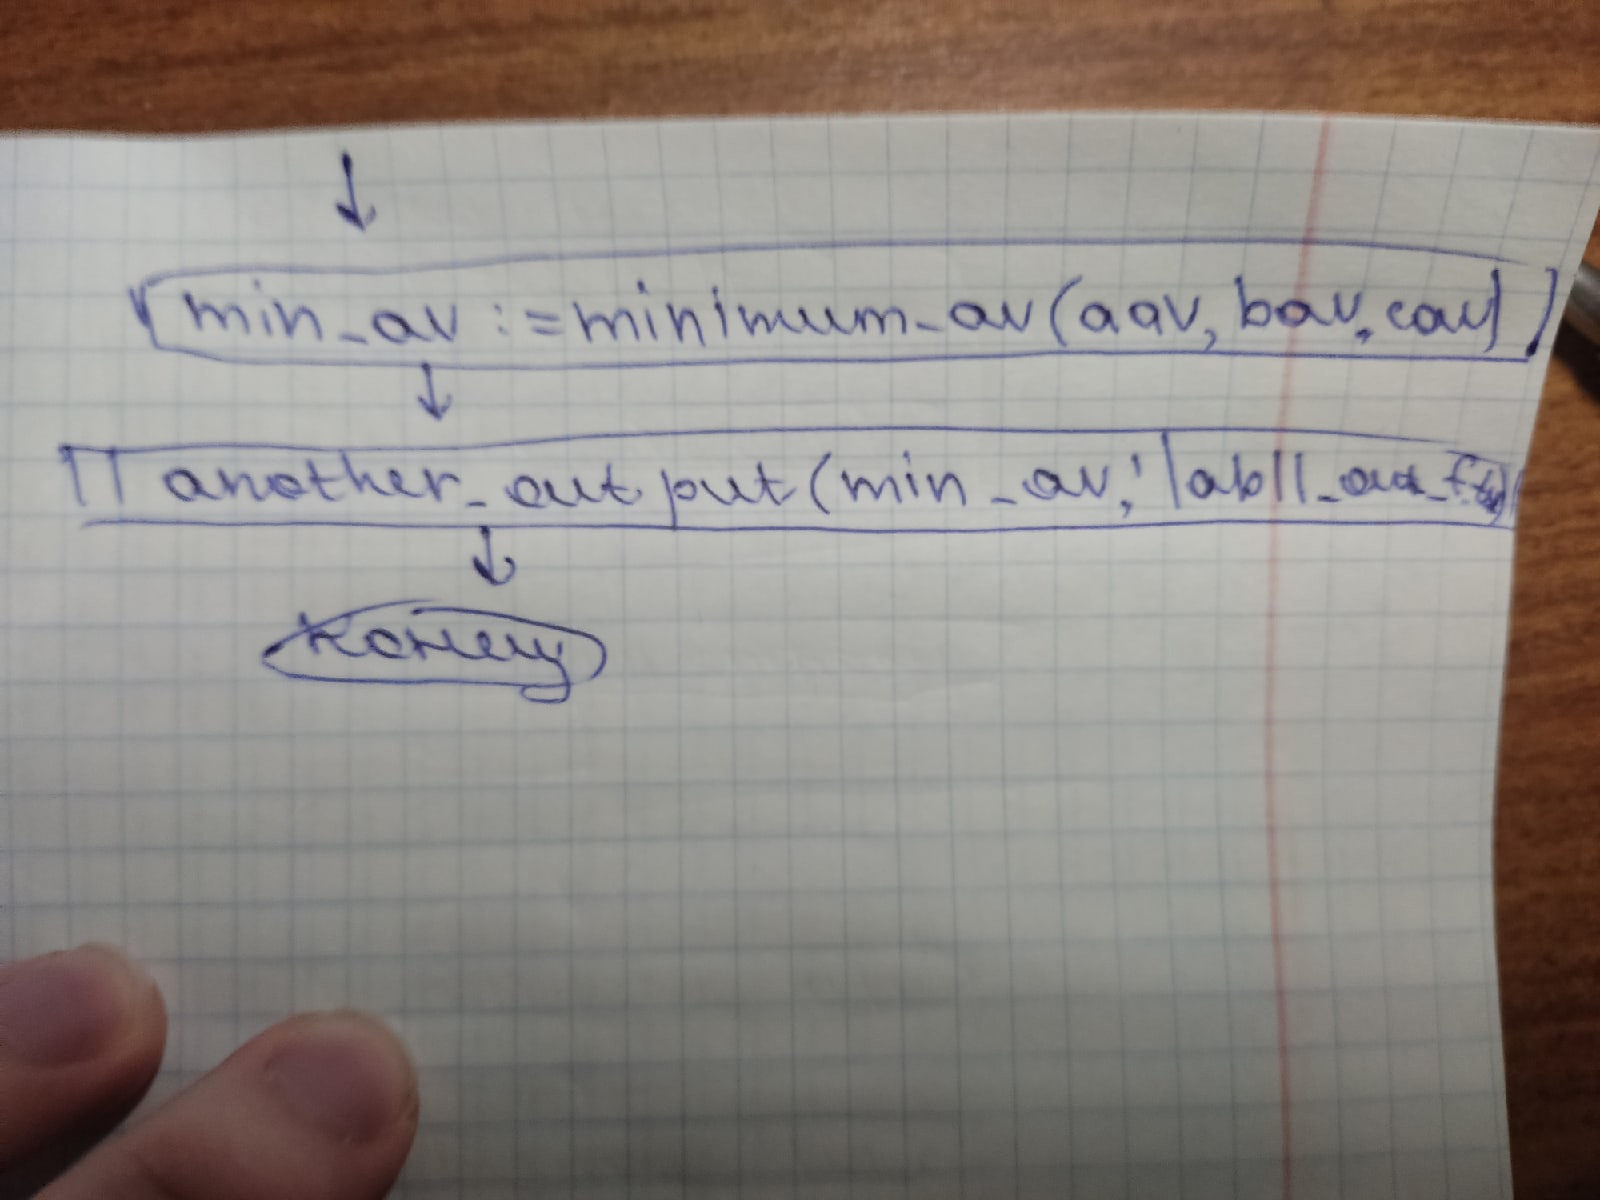 min_av := minimum_av(aav, bav, cav)
another_output(min_av, 'lab11_out_f.txt
конец